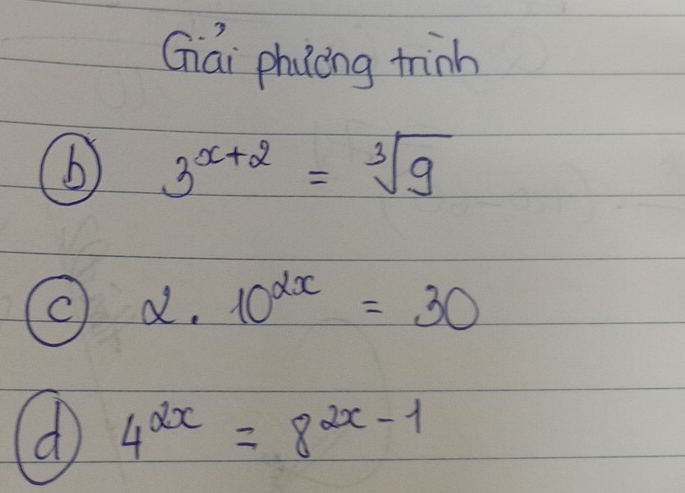 Giải phương trình
b 3^{x+2} = \sqrt[3]{9}
c 2 . 10^{2x} = 30
d 4^{2x} = 8^{2x - 1}